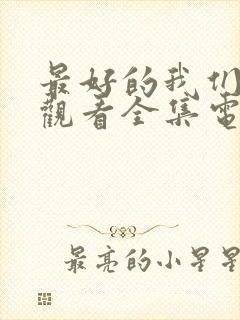 最好的我们
觀看全集電
最亮的小星星